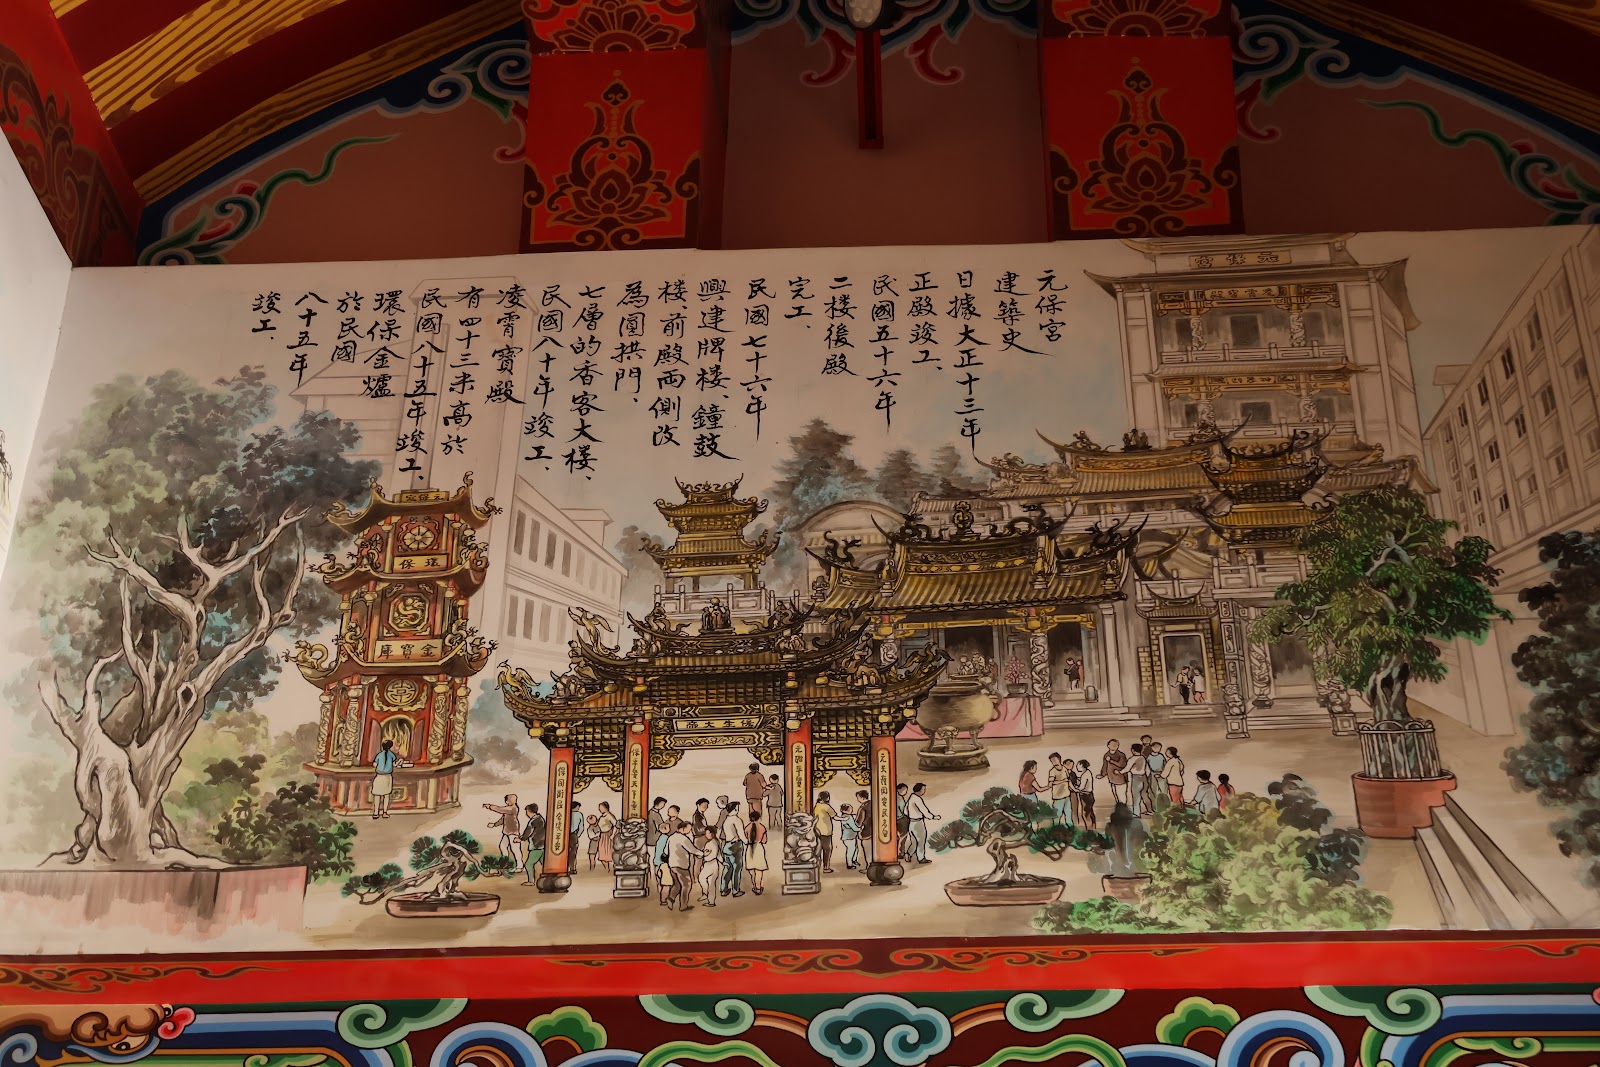 元保宮
建築史
日據大正十三年
正殿竣工、
民國五十六年
二楼後殿
完工、
民國七十六年
興建牌楼、鐘鼓
楼、前殿兩側改
為圓拱門、
七層的香客大楼、
民國八十年竣工、
凌霄寶殿
有四十三米高於
民國八十五年竣工、
環保金爐
於民國
八十五年
竣工、
元保宮
凌霄寶殿
元保宮
環保
金寶庫
保生大帝